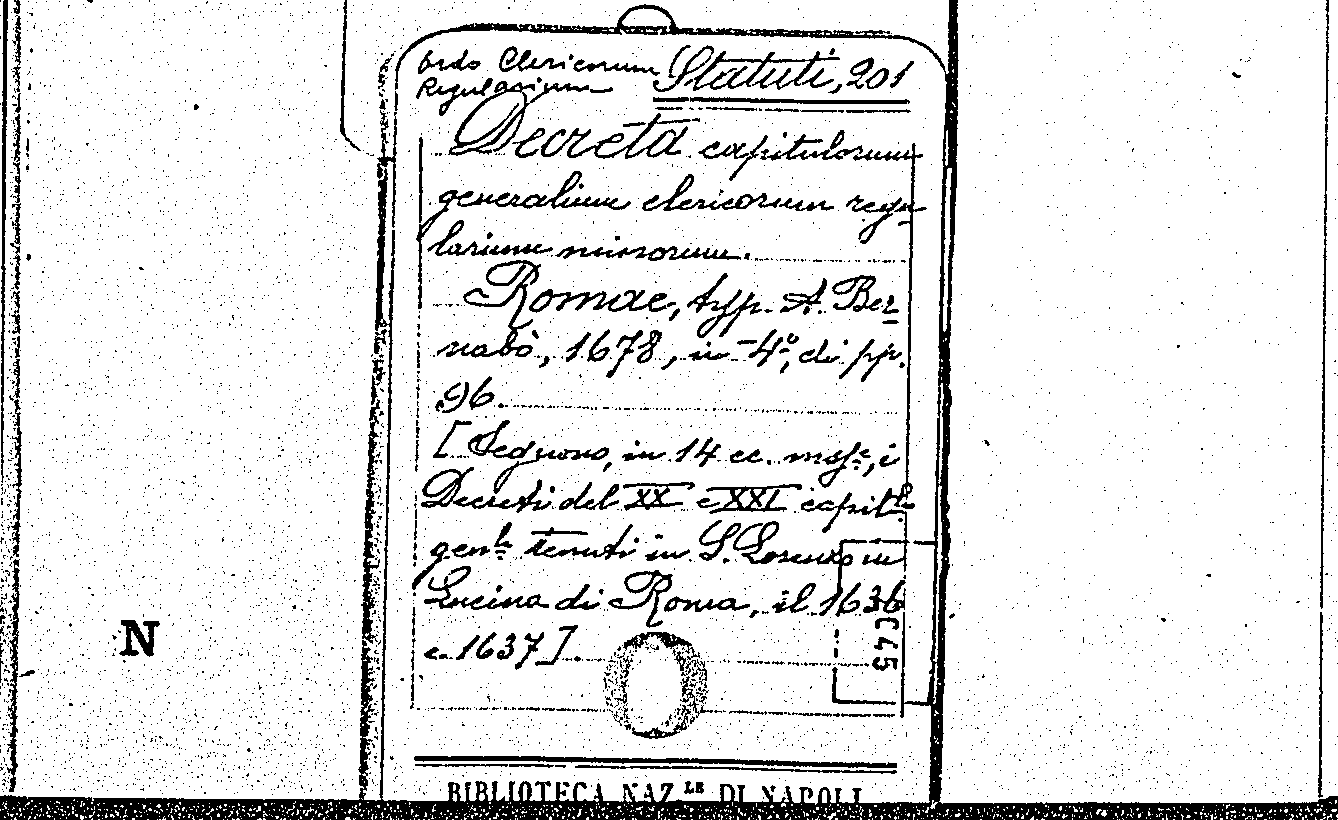 Ordo Clericorum
Regularium
Statuti, 201
Decreta capitulorum
generalium clericorum regu-
larium minorum.
Romae, typ. A. Ber-
nabò, 1678, in-4º, di pp.
96.
[Seguono, in 14 cc. mssᵉ, i
Decreti del XX e XXI capitˡⁱ
genˡⁱ tenuti in S. Lorenzo in
Lucina di Roma, il 1636
e 1637].
C45
N
BIBLIOTECA NAZ.LE DI NAPOLI